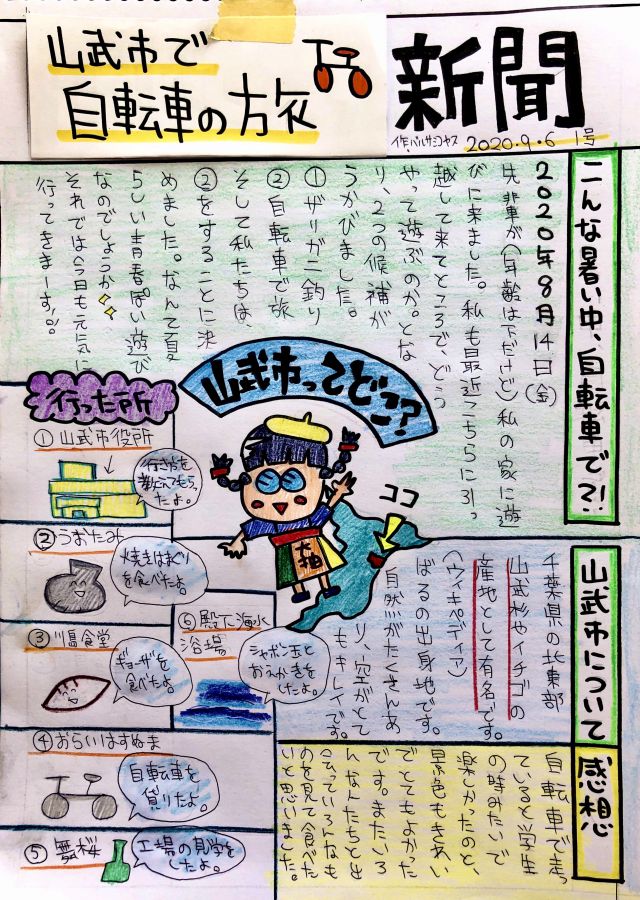 山武市で
自転車の旅
新聞
2020.9.6 1号
こんな暑い中、自転車で?!
2020年8月14日(金)
先輩が(年齢は下だけど)私の家に遊
びに来ました。私も最近こちらに引っ
越して来たところで、どう
やって遊ぶのか。とな
り、2つの候補が
うかびました。
①ザリガニ釣り
②自転車で旅
そして私たちは、
②をすることに決
めました。なんて夏
らしい青春っぽい遊び
なのでしょうか
それでは今日も元気に
行ってきまーす!!
山武市ってどこ?
ココ
行った所
①山武市役所
行き方を
教えてもらっ
たよ。
②うおたみ
焼きはまぐり
を食べたよ。
③川島食堂
ギョーザを
食べたよ。
④おらいはすぬま
自転車を
借りたよ。
⑤舞桜
工場の見学を
したよ。
⑥殿下海水
浴場
シャボン玉と
おえかきを
したよ。
山武市について
千葉県の北東部
山武杉やイチゴの
産地として有名です。
(ウィキペディア)
ばるの出身地です。
自然がたくさんあ
り、空がとて
もキレイです。
感想
自転車で走っ
ていると学生
の時みたいで
楽しかったのと、
景色もきれい
でとてもよかった
です。またいろ
んな人たちと出
会っていろんなも
のを見て食べた
いと思いました。